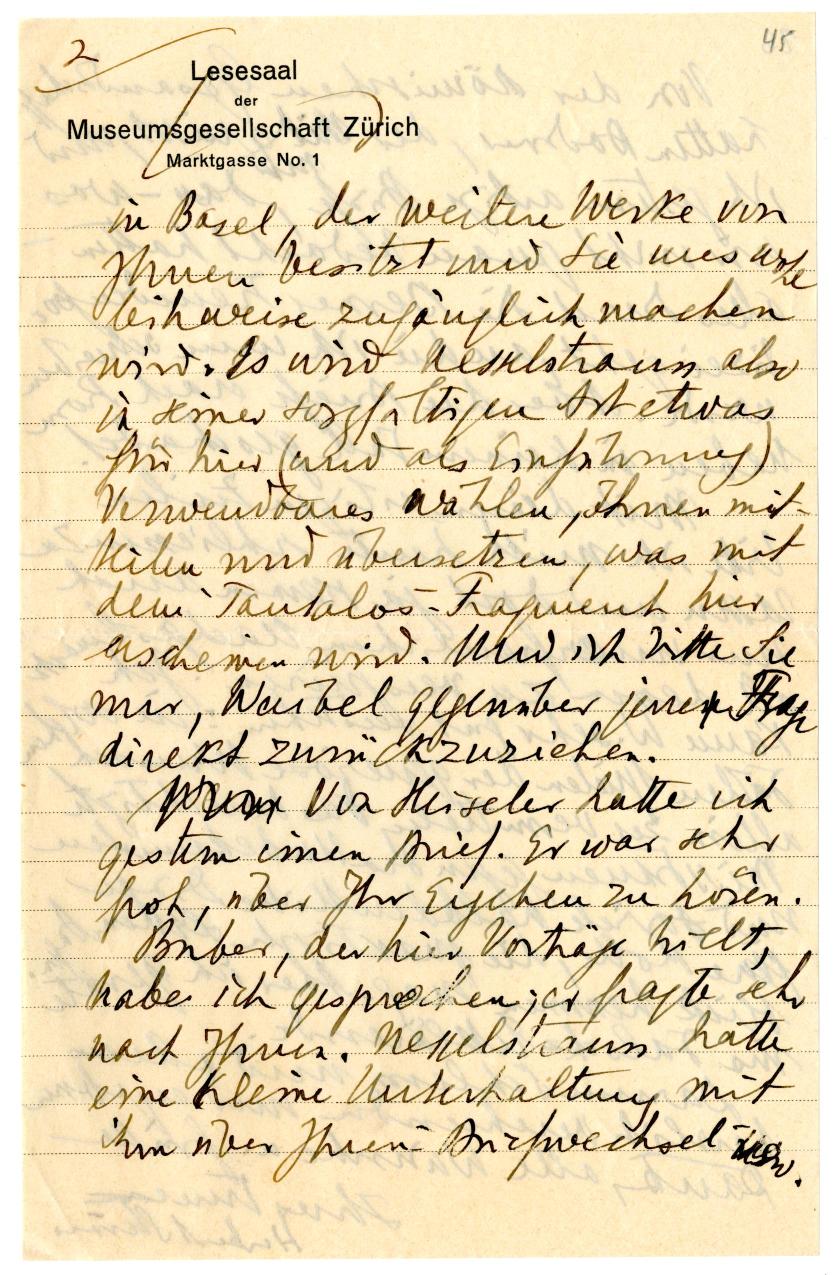 2
45
Lesesaal
der
Museumsgesellschaft Zürich
Marktgasse No. 1
in Basel, der weitere Werke von
Ihnen besitzt und sie uns
leihweise zugänglich machen
wird. Es wird Nesselstrauss also
in seiner sorgfältigen Art etwas
für hier (und als Einführung)
Verwendbares wählen, Ihnen mit-
teilen und übersetzen, was mit
dem Tantalos-Fragment hier
erscheinen wird. Und ich bitte Sie
nur, Waibel gegenüber jene Frage
direkt zurückzuziehen.
Von Heiseler hatte ich
gestern einen Brief. Er war sehr
froh, über Ihr Ergehen zu hören.
Buber, der hier Vorträge hielt,
habe ich gesprochen; er fragte sehr
nach Ihnen. Nesselstrauss hatte
eine kleine Unterhaltung mit
ihm über Ihren Briefwechsel usw.